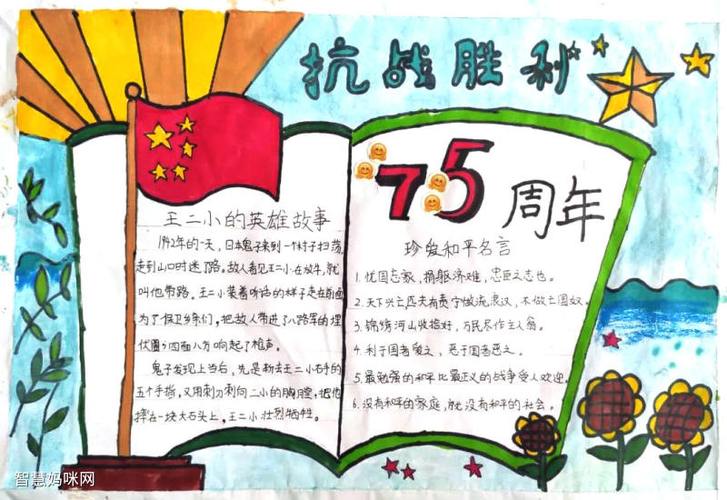 抗战胜利
75周年
王二小的英雄故事
1942年的一天，日本鬼子来到一个村子扫荡
走到山口时迷了路。敌人看见王二小在放牛，就
叫他带路。王二小装着听话的样子走在前面
为了保卫乡亲们，把敌人带进了八路军的埋
伏圈，四面八方响起了枪声。
鬼子发现上当后，先是砍去王二小右手的
五个手指，又用刺刀刺向二小的胸膛，把他
摔在一块大石头上，王二小壮烈牺牲。
珍爱和平名言
1.忧国忘家，捐躯济难，忠臣之志也。
2.天下兴亡匹夫有责宁做流浪汉，不做亡国奴。
3.锦绣河山收拾好，万民尽作主人翁。
4.利于国者爱之，恶于国者恶之。
5.最勉强的和平比最正义的战争受人欢迎。
6.没有和平的家庭，就没有和平的社会。
智慧妈咪网